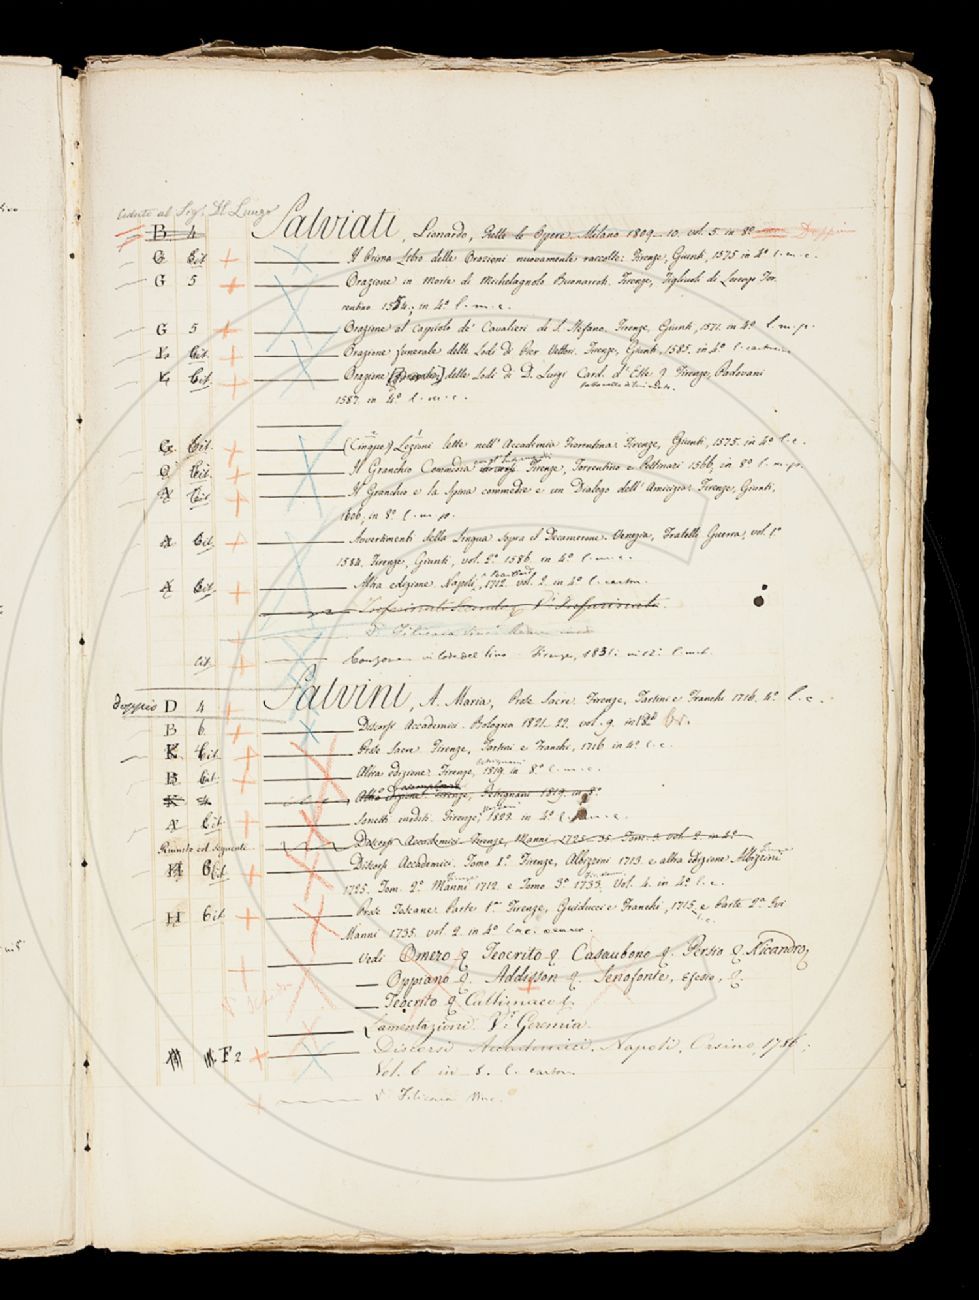 Ceduto al Sig. Del Lungo
B 4 Salviati, Lionardo, Tutte le Opere. Milano 1809-10. vol. 5. in 8º Doppio
G Cit. Il Primo Libro delle Orazioni nuovamente raccolte: Firenze, Giunti, 1575 in 4º l. m. c.
G 5 Orazione in morte di Michelagnolo Buonarroti. Firenze, Figliuoli di Lorenzo Tor-
rentino 1564, in 4º l. m. c.
G 5 Orazione al Capitolo de' Cavalieri di S. Stefano. Firenze, Giunti, 1571. in 4º l. m. p.
Cit. Orazione funerale delle Lodi di Pier Vettori. Firenze, Giunti, 1585. in 4º l.
Cit. Orazione delle Lodi di D. Luigi Card. d'Este Firenze, Padovani
1587. in 4º l. m. c.
Cit. (Cinque) Lezioni lette nell'Accademia Fiorentina: Firenze, Giunti, 1575. in 4º l. c.
Cit. Il Granchio Commedia in versi Firenze, Torrentino e Pettinari 1566, in 8º l. m. p.
A Cit. Il Granchio e la Spina commedie e un Dialogo dell'Amicizia: Firenze, Giunti,
1606, in 8º l. m. p.
A Cit. Avvertimenti della Lingua sopra il Decamerone. Venezia, Fratelli Guerra, vol. 1º
1584. Firenze, Giunti, vol. 2º 1586. in 4º l. m. c.
A Cit. Altra edizione. Napoli, 1712. vol. 2. in 4º l. carton.
Infarinato Secondo V. Infarinato.
V. Filicaia
Cit. in lode del Vino Firenze, 1831: in l. m. c.
doppio D 4 Salvini, A. Maria, Prose Sacre. Firenze, Tartini e Franchi 1716. 4º l. c.
B 6 Discorsi Accademici. Bologna 1821-22. vol. 9. in 12º br.
K Cit. Prose Sacre. Firenze, Tartini e Franchi, 1716 in 4º l. c.
B Cit. Altra edizione. Firenze, 1819. in 8º l. m. c.
K 4 Altro Esemplare Firenze, Pettignani 1819. in 8º
A Cit. Sonetti inediti. Firenze, 1823. in 4º l. m. c.
Riunito col seguente Discorsi Accademici. Firenze, Manni 1725-35. Tom. 3. vol. 2. in 4º
H Cit. Discorsi Accademici. Tomo 1º Firenze, Albizzini 1713. e altra edizione Albizzini
1725. Tom. 2º Manni 1712. e Tomo 3º 1733. Vol. 4. in 4º l. c.
H Cit. Prose Toscane. Parte 1ª Firenze, Guiducci e Franchi, 1715. e Parte 2ª Ivi
Manni 1735. vol. 2. in 4º
Vedi Omero Q. Teocrito Q. Casaubono Q. Persio Q. Nicandro,
Oppiano Q. Addisson Q. Senofonte, Efesio, Q.
Teocrito Q. Callimaco Q.
Lamentazioni. V. Geremia.
F 2 Discorsi Accademici. Napoli, Orsino, 1786;
Vol. 6 in 8. l. carton.
V. Filicaia